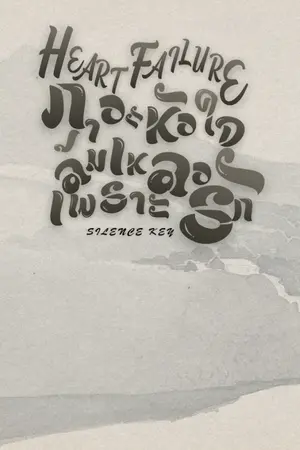 HEART FAILURE
ภาวะหัวใจ
ล้มเหลว
เพราะรัก
SILENCE KEY